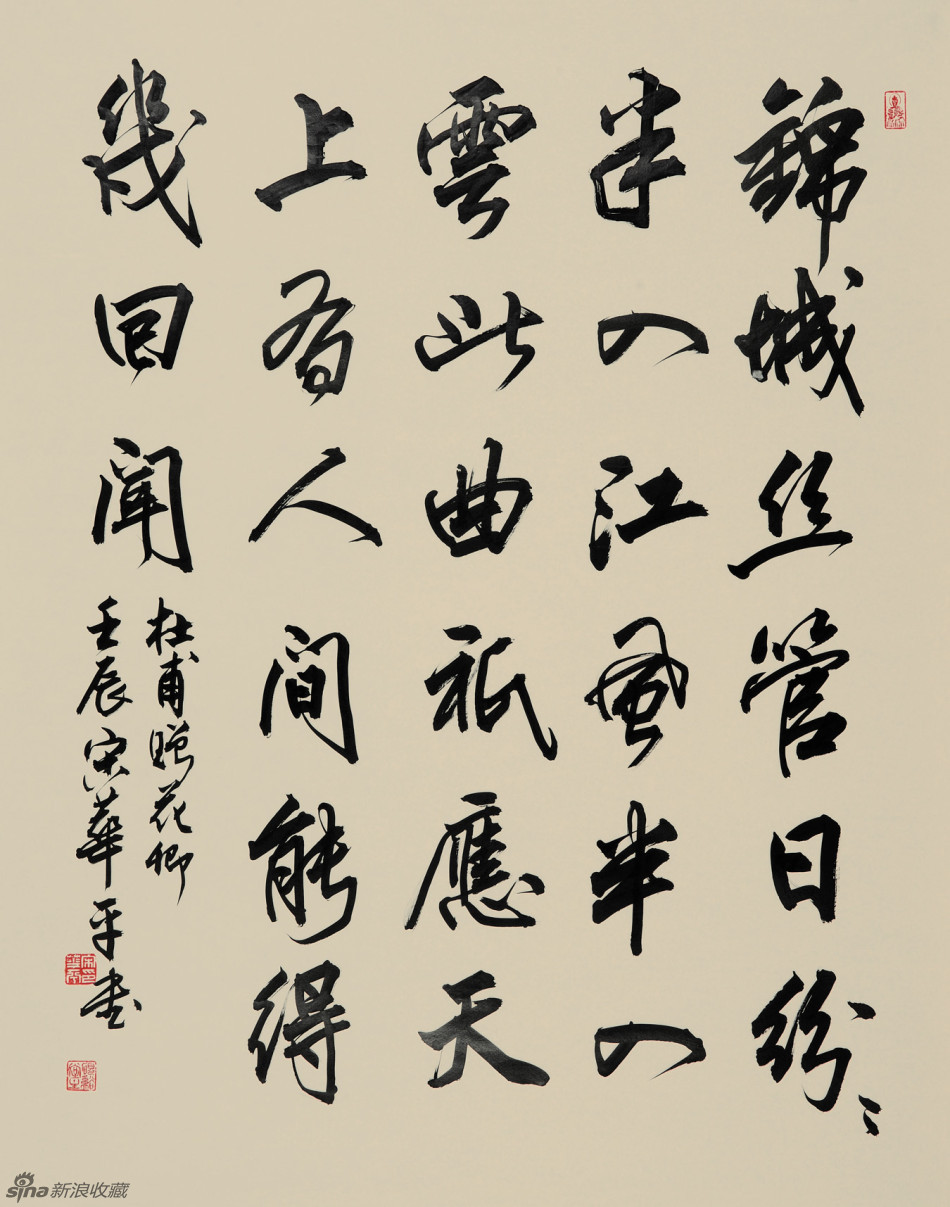 錦城丝管日紛〻
半入江風半入
雲此曲祇應天
上有人间能得
幾回闻
杜甫赠花卿
壬辰宋華平书
sina新浪收藏